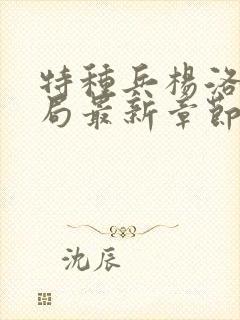 特種兵楊洛
局最新章節
沈辰